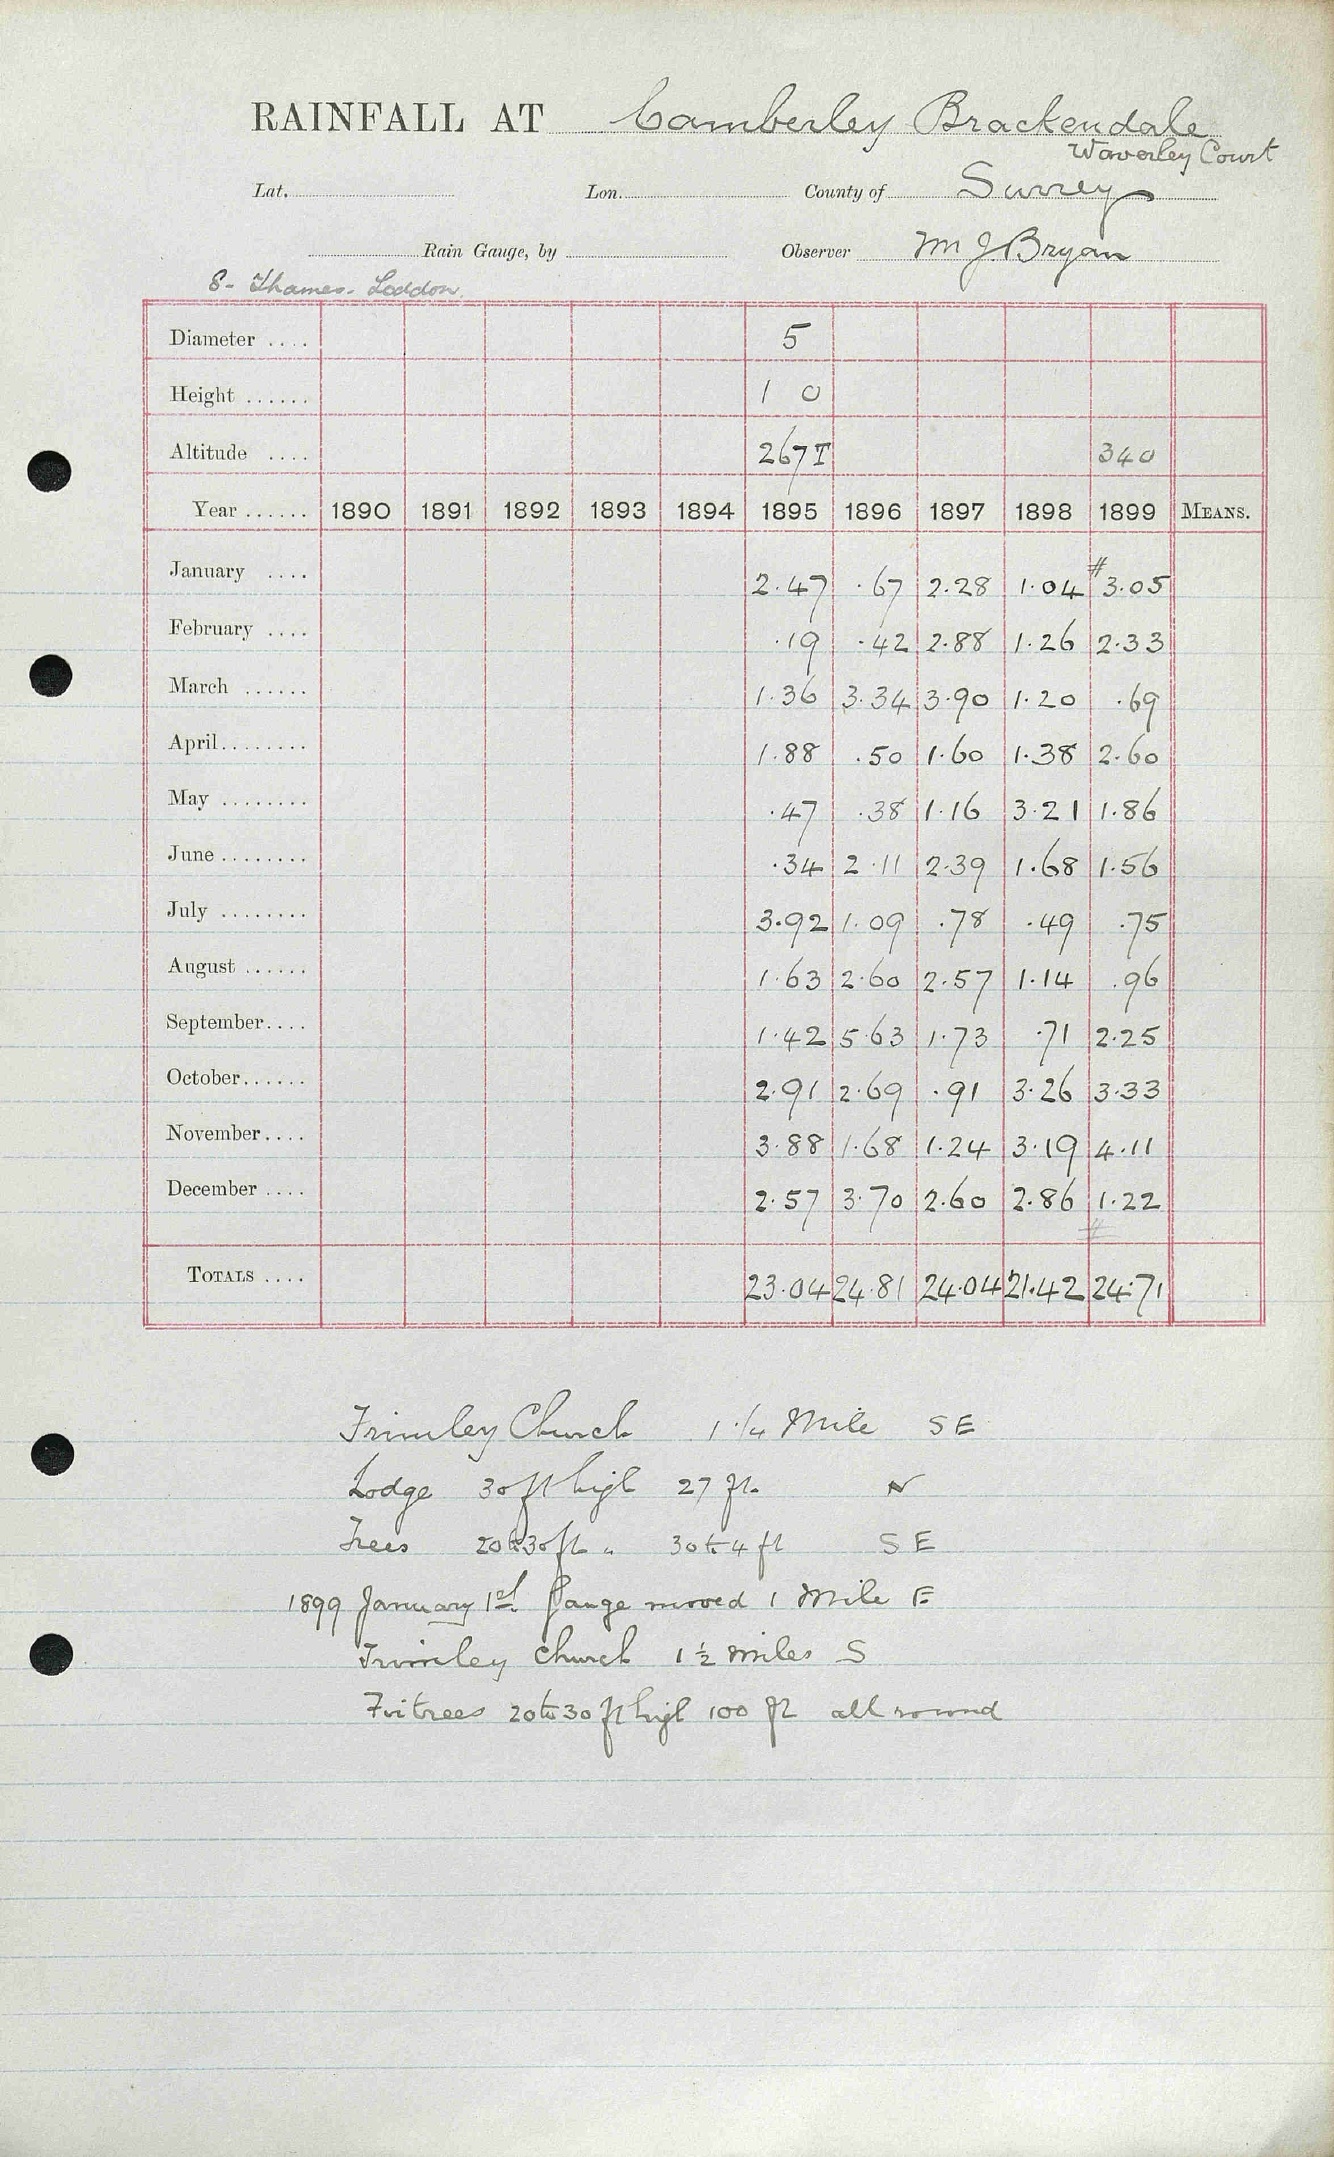 RAINFALL AT Camberley Brackendale
Waverley Court
Lat. Lon. County of Surrey
Rain Gauge, by Observer M J Bryan
8- Thames. Loddon.
Diameter .... 5
Height ...... 1 0
Altitude .... 267T 340
Year ...... 1890 1891 1892 1893 1894 1895 1896 1897 1898 1899 MEANS.
January .... 2.47 .67 2.28 1.04 # 3.05
February .... .19 .42 2.88 1.26 2.33
March ...... 1.36 3.34 3.90 1.20 .69
April........ 1.88 .50 1.60 1.38 2.60
May ........ .47 .38 1.16 3.21 1.86
June ........ .34 2.11 2.39 1.68 1.56
July ........ 3.92 1.09 .78 .49 .75
August ...... 1.63 2.60 2.57 1.14 .96
September.... 1.42 5.63 1.73 .71 2.25
October...... 2.91 2.69 .91 3.26 3.33
November.... 3.88 1.68 1.24 3.19 4.11
December .... 2.57 3.70 2.60 2.86 1.22
#
TOTALS .... 23.04 24.81 24.04 21.42 24.71
Frimley Church 1 1/4 Mile SE
Lodge 30 ft high 27 ft. N
Trees 20 to 30 ft " 30 to 4 ft SE
1899 January 1st. Gauge moved 1 Mile E
Frimley Church 1 1/2 miles S
Fir trees 20 to 30 ft high 100 ft all round